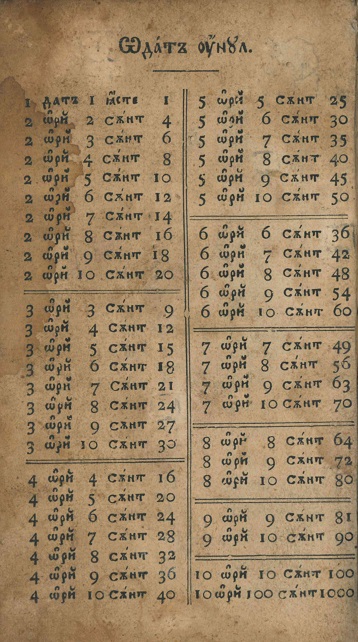 Ѡда́тъ оу҆́нꙋл.
1 датъ 1 ѧ҆́сте 1
2 ѡ҆рй 2 сѫ́нт 4
2 ѡ҆рй 3 сѫ́нт 6
2 ѡ҆рй 4 сѫ́нт 8
2 ѡ҆рй 5 сѫ́нт 10
2 ѡ҆рй 6 сѫ́нт 12
2 ѡ҆рй 7 сѫ́нт 14
2 ѡ҆рй 8 сѫ́нт 16
2 ѡ҆рй 9 сѫ́нт 18
2 ѡ҆рй 10 сѫ́нт 20
3 ѡ҆рй 3 сѫ́нт 9
3 ѡ҆рй 4 сѫ́нт 12
3 ѡ҆рй 5 сѫ́нт 15
3 ѡ҆рй 6 сѫ́нт 18
3 ѡ҆рй 7 сѫ́нт 21
3 ѡ҆рй 8 сѫ́нт 24
3 ѡ҆рй 9 сѫ́нт 27
3 ѡ҆рй 10 сѫ́нт 30
4 ѡ҆рй 4 сѫ́нт 16
4 ѡ҆рй 5 сѫ́нт 20
4 ѡ҆рй 6 сѫ́нт 24
4 ѡ҆рй 7 сѫ́нт 28
4 ѡ҆рй 8 сѫ́нт 32
4 ѡ҆рй 9 сѫ́нт 36
4 ѡ҆рй 10 сѫ́нт 40
5 ѡ҆рй 5 сѫ́нт 25
5 ѡ҆рй 6 сѫ́нт 30
5 ѡ҆рй 7 сѫ́нт 35
5 ѡ҆рй 8 сѫ́нт 40
5 ѡ҆рй 9 сѫ́нт 45
5 ѡ҆рй 10 сѫ́нт 50
6 ѡ҆рй 6 сѫ́нт 36
6 ѡ҆рй 7 сѫ́нт 42
6 ѡ҆рй 8 сѫ́нт 48
6 ѡ҆рй 9 сѫ́нт 54
6 ѡ҆рй 10 сѫ́нт 60
7 ѡ҆рй 7 сѫ́нт 49
7 ѡ҆рй 8 сѫ́нт 56
7 ѡ҆рй 9 сѫ́нт 63
7 ѡ҆рй 10 сѫ́нт 70
8 ѡ҆рй 8 сѫ́нт 64
8 ѡ҆рй 9 сѫ́нт 72
8 ѡ҆рй 10 сѫ́нт 80
9 ѡ҆рй 9 сѫ́нт 81
9 ѡ҆рй 10 сѫ́нт 90
10 ѡ҆рй 10 сѫ́нт 100
10 ѡ҆рй 100 сѫ́нт 1000